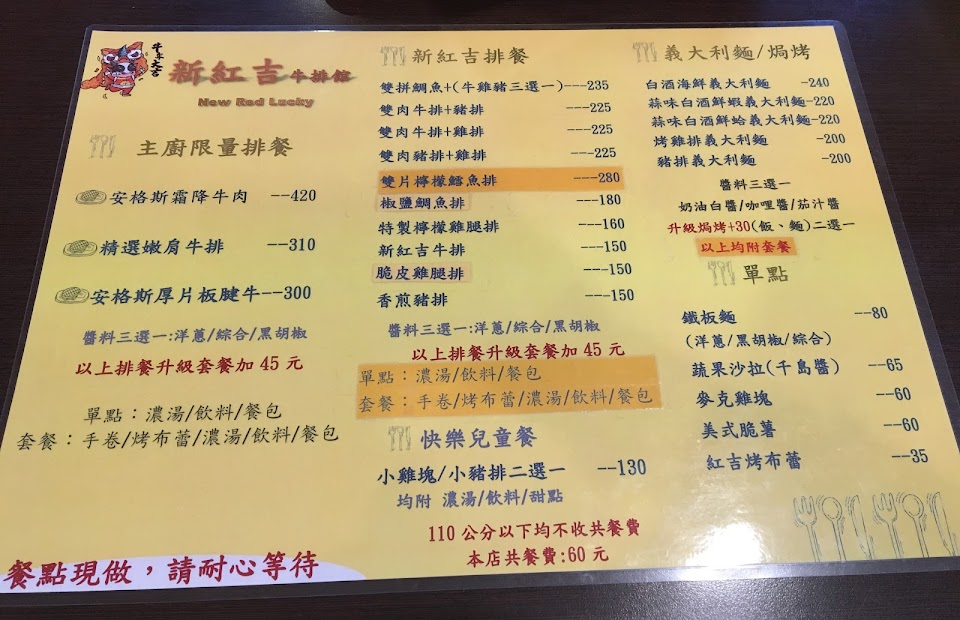 牛年大吉
新紅吉牛排館
New Red Lucky
主廚限量排餐
安格斯霜降牛肉 --420
精選嫩肩牛排 --310
安格斯厚片板腱牛--300
醬料三選一:洋蔥/綜合/黑胡椒
以上排餐升級套餐加 45 元
單點：濃湯/飲料/餐包
套餐：手卷/烤布蕾/濃湯/飲料/餐包
餐點現做，請耐心等待
新紅吉排餐
雙拼鯛魚+(牛雞豬三選一)---235
雙肉牛排+豬排 ---225
雙肉牛排+雞排 ---225
雙肉豬排+雞排 ---225
雙片檸檬鱈魚排 ---280
椒鹽鯛魚排 ---180
特製檸檬雞腿排 ---160
新紅吉牛排 ---150
脆皮雞腿排 ---150
香煎豬排 ---150
醬料三選一:洋蔥/綜合/黑胡椒
以上排餐升級套餐加 45 元
單點：濃湯/飲料/餐包
套餐：手卷/烤布蕾/濃湯/飲料/餐包
快樂兒童餐
小雞塊/小豬排二選一 --130
均附 濃湯/飲料/甜點
110 公分以下均不收共餐費
本店共餐費:60 元
義大利麵/焗烤
白酒海鮮義大利麵 -240
蒜味白酒鮮蝦義大利麵-220
蒜味白酒鮮蛤義大利麵-220
烤雞排義大利麵 -200
豬排義大利麵 -200
醬料三選一
奶油白醬/咖哩醬/茄汁醬
升級焗烤+30(飯、麵)二選一
以上均附套餐
單點
鐵板麵 --80
(洋蔥/黑胡椒/綜合)
蔬果沙拉(千島醬) --65
麥克雞塊 --60
美式脆薯 --60
紅吉烤布蕾 --35